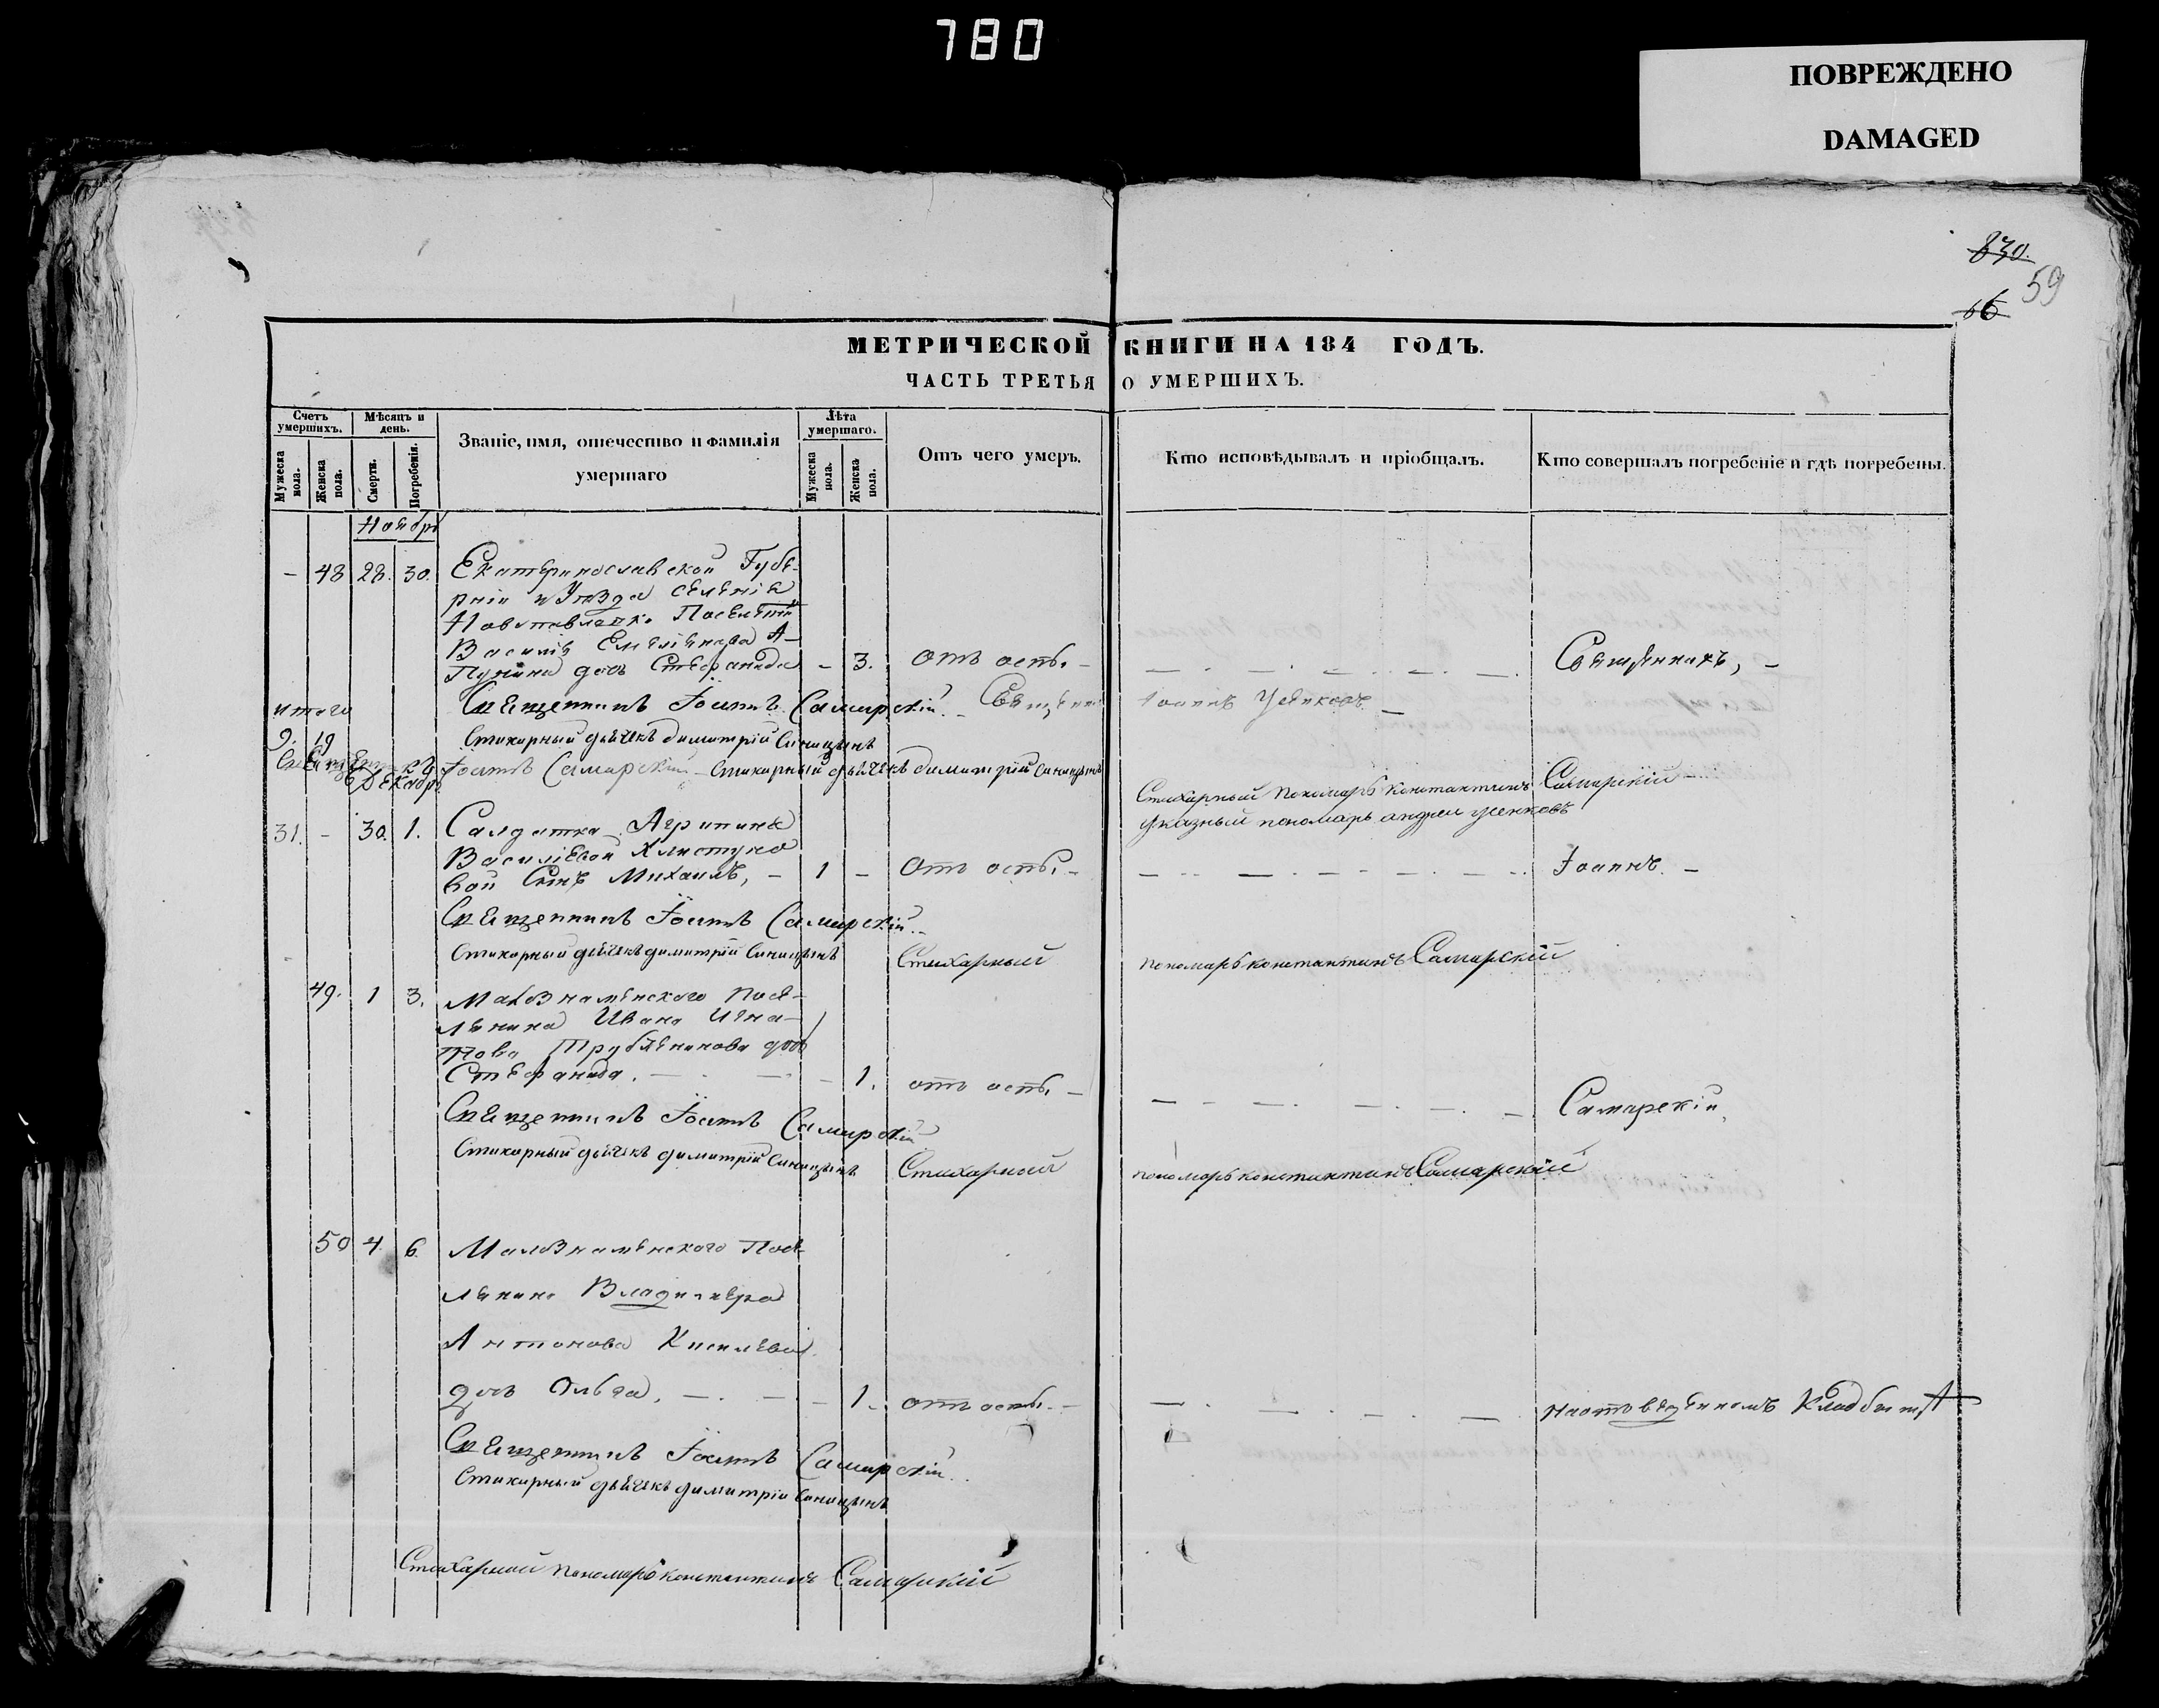 780
ПОВРЕЖДЕНО
DAMAGED
830.
59
66
МЕТРИЧЕСКОЙ КНИГИ НА 184 ГОДЪ.
ЧАСТЬ ТРЕТЬЯ О УМЕРШИХЪ.
Счетъ умершихъ.
Мѣсяцъ и день.
Званіе, имя, отечество и фамилія умершаго
Лѣта умершаго.
Отъ чего умеръ.
Кто исповѣдывалъ и пріобщалъ.
Кто совершалъ погребеніе и гдѣ погребены.
Мужеска пола.
Женска пола.
Смерти.
Погребенія.
Мужеска пола.
Женска пола.
Ноябрь
– 48 28. 30. Екатеринославской Губе-
рніи и Уѣзда селенія
Василія Емеліянова А-
дочь Стефанида – 3. отъ оспы – Священникъ, –
итого Священникъ Іоаннъ Самарскій. Священ Іоаннъ Усенковъ –
9. 19 Стихарный дьячекъ димитрій Синицынъ
Священникъ Іоаннъ Самарскій – Стихарный дьячекъ димитрій Синицынъ
Декабрь
Стихарный пономарь константинъ Самарскій
указный пономарь андрей усенковъ
31. – 30. 1. Салдатка Агрипина
Василіевой Хлисту но
вой Сынъ Михаилъ, – 1 – Отъ оспы – Іоаннъ. –
Священникъ Іоаннъ Самарскій.
Стихарный дьячекъ димитрій Синицынъ
Стихарный пономарь константинъ Самарскій
49. 1 3. посе-
лянина Ивана Игна-
това дочь
Стефанида. – 1. отъ оспы – Самарскій,
Священникъ Іоаннъ Самарскій
Стихарный дьячекъ димитрій Синицынъ
Стихарный пономарь константинъ Самарскій
50 4. 6. Малознаменского Посе-
лянина Владимера
Антонова Киселева
дочь Ольга. – 1. отъ оспы. – на отведенномъ Кладбищѣ
Священникъ Іоаннъ Самарскій.
Стихарный дьячекъ димитрій Синицынъ
Стихарный пономарь константинъ Самарскій